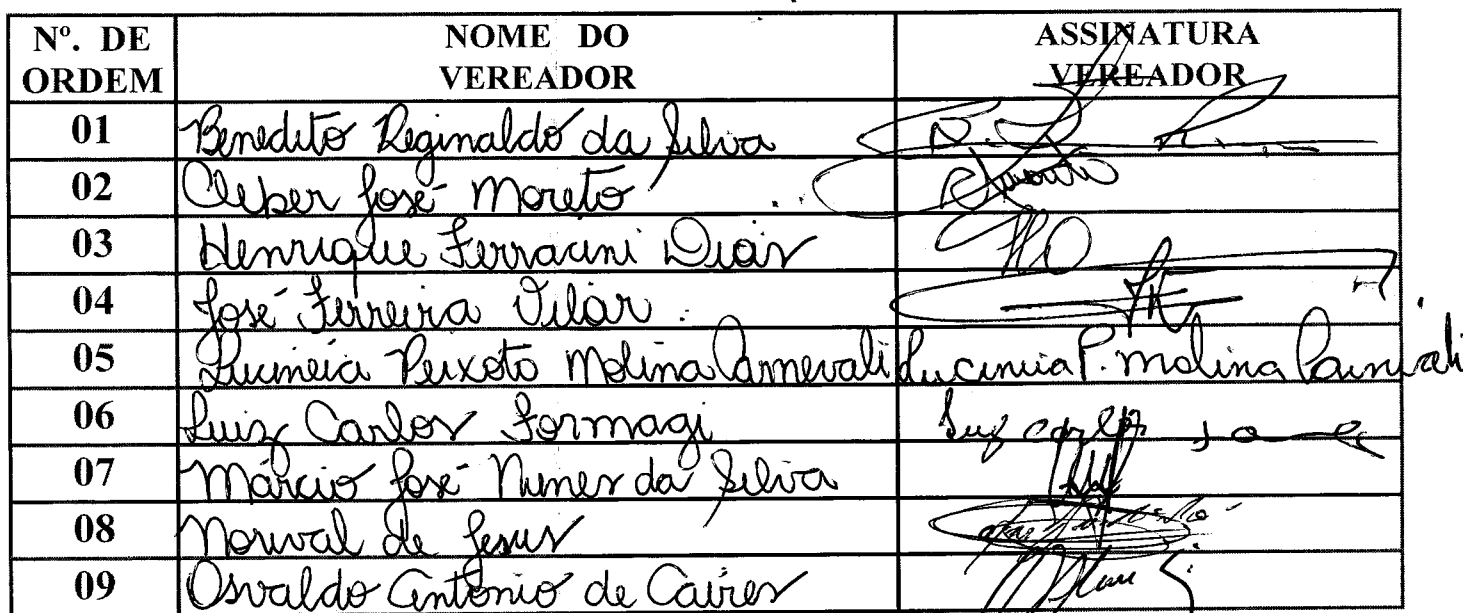 Nº. DE ORDEM NOME DO VEREADOR ASSINATURA VEREADOR
01 Benedito Reginaldo da Silva
02 Cleber José Moreto
03 Henrique Ferracini Dias
04 José Ferreira Vilar
05 Lucineia Peixoto Molina Carnevali Lucineia P. Molina Carnevali
06 Luiz Carlos Formagi Luiz Carlos
07 Márcio José Nunes da Silva
08 Norival de Jesus
09 Osvaldo Antônio de Caires